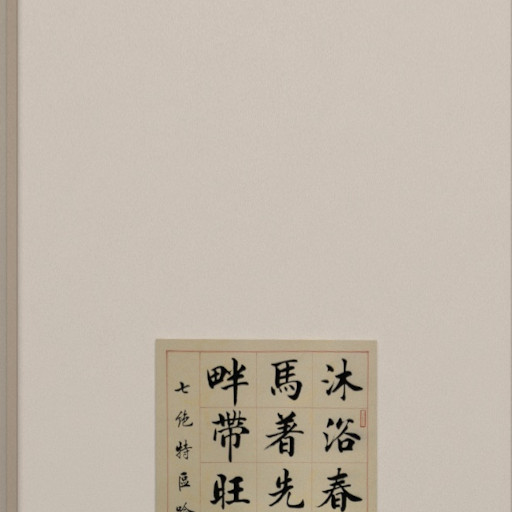 沐浴春
馬著先
畔帶旺
七絕特區